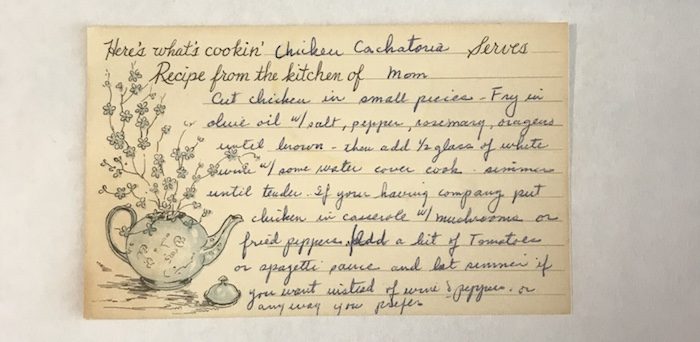 Here's what's cookin' Chicken Cachatoria Serves
Recipe from the kitchen of Mom
Cut chicken in small pieces - Fry in
olive oil w/ salt, pepper, rosemary, oragens
until brown - then add 1/2 glass of white
wine w/ some water cover cook. simmer
until tender. If your having company put
chicken in casserole w/ mushrooms or
fried peppers. Add a bit of Tomatoes
or spagetti sauce and let simmer if
you want instead of wine & peppers. or
any way you prefer